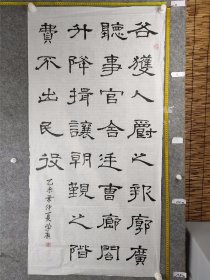 各獲人爵之報廓廣
聽事官舍廷曹廊閣
升降揖讓朝覲之階
費不出民役
乙未年仲夏